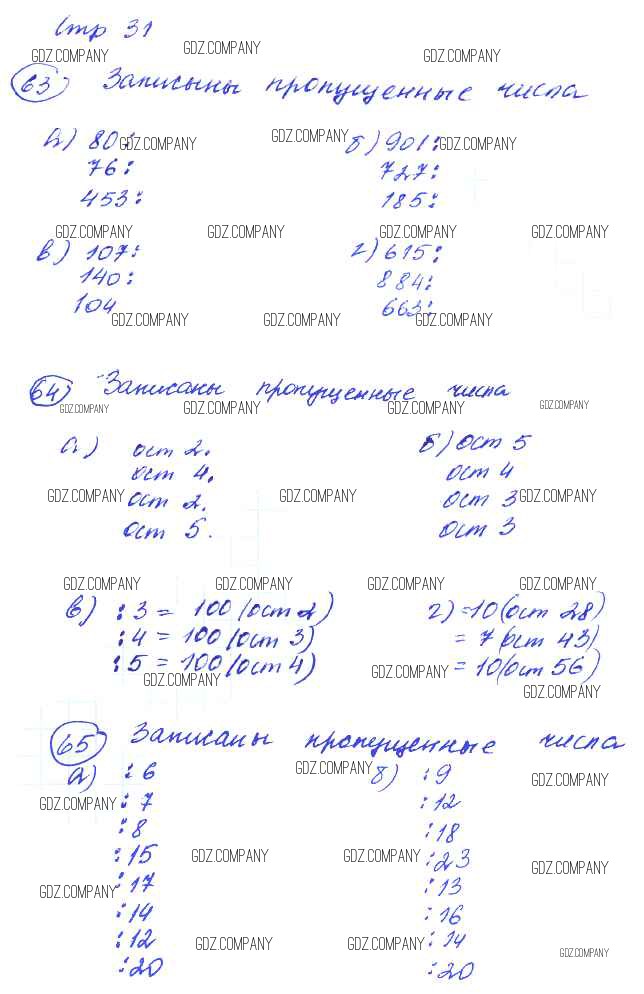 Стр 31
GDZ.COMPANY GDZ.COMPANY GDZ.COMPANY
63) Записыны пропущенные числа
а) 801: GDZ.COMPANY GDZ.COMPANY б) 901: GDZ.COMPANY
76: 727:
453: 185:
GDZ.COMPANY GDZ.COMPANY GDZ.COMPANY GDZ.COMPANY
в) 107: г) 615:
140: 884:
104 663:
GDZ.COMPANY GDZ.COMPANY GDZ.COMPANY
64) Записаны пропущенные числа
GDZ.COMPANY GDZ.COMPANY GDZ.COMPANY GDZ.COMPANY
а) ост 2. б) ост 5
ост 4. ост 4
GDZ.COMPANY ост 2. GDZ.COMPANY ост 3 GDZ.COMPANY
ост 5. ост 3
GDZ.COMPANY GDZ.COMPANY GDZ.COMPANY GDZ.COMPANY
в) :3 = 100 (ост 2) г) =10 (ост 28)
:4 = 100 (ост 3) = 7 (ост 43)
:5 = 100 (ост 4) = 10 (ост 56)
GDZ.COMPANY GDZ.COMPANY GDZ.COMPANY
65) Записаны пропущенные числа
а) :6 GDZ.COMPANY б) :9 GDZ.COMPANY
GDZ.COMPANY :7 :12
:8 :18
:15 GDZ.COMPANY GDZ.COMPANY :23 GDZ.COMPANY
GDZ.COMPANY :17 :13
:14 :16
:12 GDZ.COMPANY GDZ.COMPANY :14 GDZ.COMPANY
:20 :20